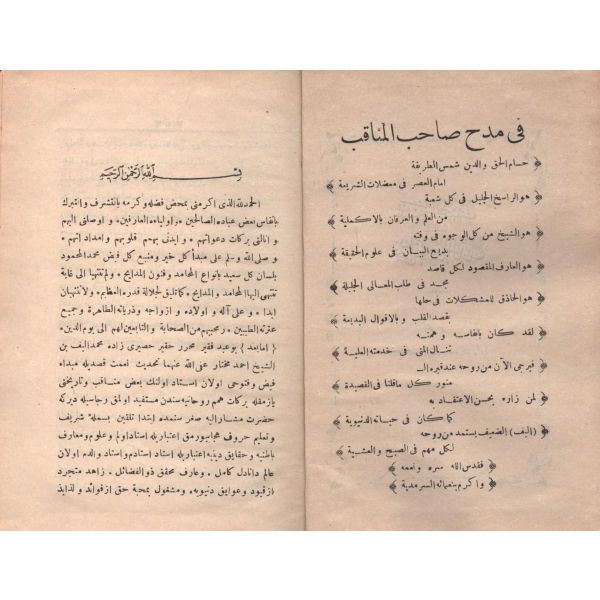 فى مدح صاحب المناقب
حسام الحق والدين شمس الطريقة
امام العصر فى معضلات الشريعة
هو الراسخ الجليل فى كل شمية
من العلم والعرفان بالاكملية
هو الشيخ من كل الوجوه فى وقته
بديع البيان فى علوم الحقيقة
هو العارف المقصود لكل قاصد
مجد فى طلب المعالى الجليلة
هو الحاذق للمشكلات فى حلها
بقصد القلب و بالاقوال البديعة
لقد كان بانفاسه و همته
تنال المنى فى خدمته العلية
فيرجى الآن من روحه عند قبره الـ
منور كل ماقلنا فى القصيدة
لمن زاره بحسن الاعتقاد به
كما كان فى حياته الدنيوية
(اليف) الضعيف يستمد من روحه
لكل مهم فى الصبح والعشية
فقدس الله سره و نعمه
واكرم بنعمائه السرمدية
بسم الله الرحمن الرحيم
الحمد لله الذى اكرمنى بمحض فضله وكرمه بالتشرف والتبرك
بانفاس بعض عباده الصالحين * و اولياءه العارفين * و اوصلنى اليهم
و انالنى بركات دعواتهم * و ايدنى بهمم قلوبهم و امداد انهم *
و صلى الله وسلم على مبدأ كل خير و منبع كل فيض محمد المحمود
بلسان كل سعيد بانواع المحامد و فنون المدايح * و لم تنتها الى غاية
تنتهى اليها المحامد و المدايح * كما تليق لجلالة قدره العظيم * ولا تنتهيان
ابدا * و على آله و اولاده و ازواجه و ذرياته الطاهرة و جميع
عترته الطيبين * و محبيهم من الصحابة و التابعين لهم الى يوم الدين *
{ اما بعد } بو عبد فقير محرر حقير حصيرى زاده محمد اليف بن
الشيخ احمد مختار عفى الله عنهما تحديث نعمت قصديله مبداء
فيض و فتوحى اولان استاد اولنك بعض مناقب و تاريخنى
يازمغله بركات هم روحانيه سندن مستفيد اولمق رجاسيله ديركه
حضرت مشار اليه صغر سنمده ابتدا تلقين بسمله شريف
و تعليم حروف هجا يبورمق اعتباريله استاد اولم و علوم و معارف
باطنه و حقايق دينيه اعتباريله استاد استادم و استاد والدم اولان
عالم دانادل كامل * و عارف محقق ذو الفضائل * زاهد متجرد
از قيود و عوايق دنيويه * و مشغول بمحبة حق از فوائد و لذايذ